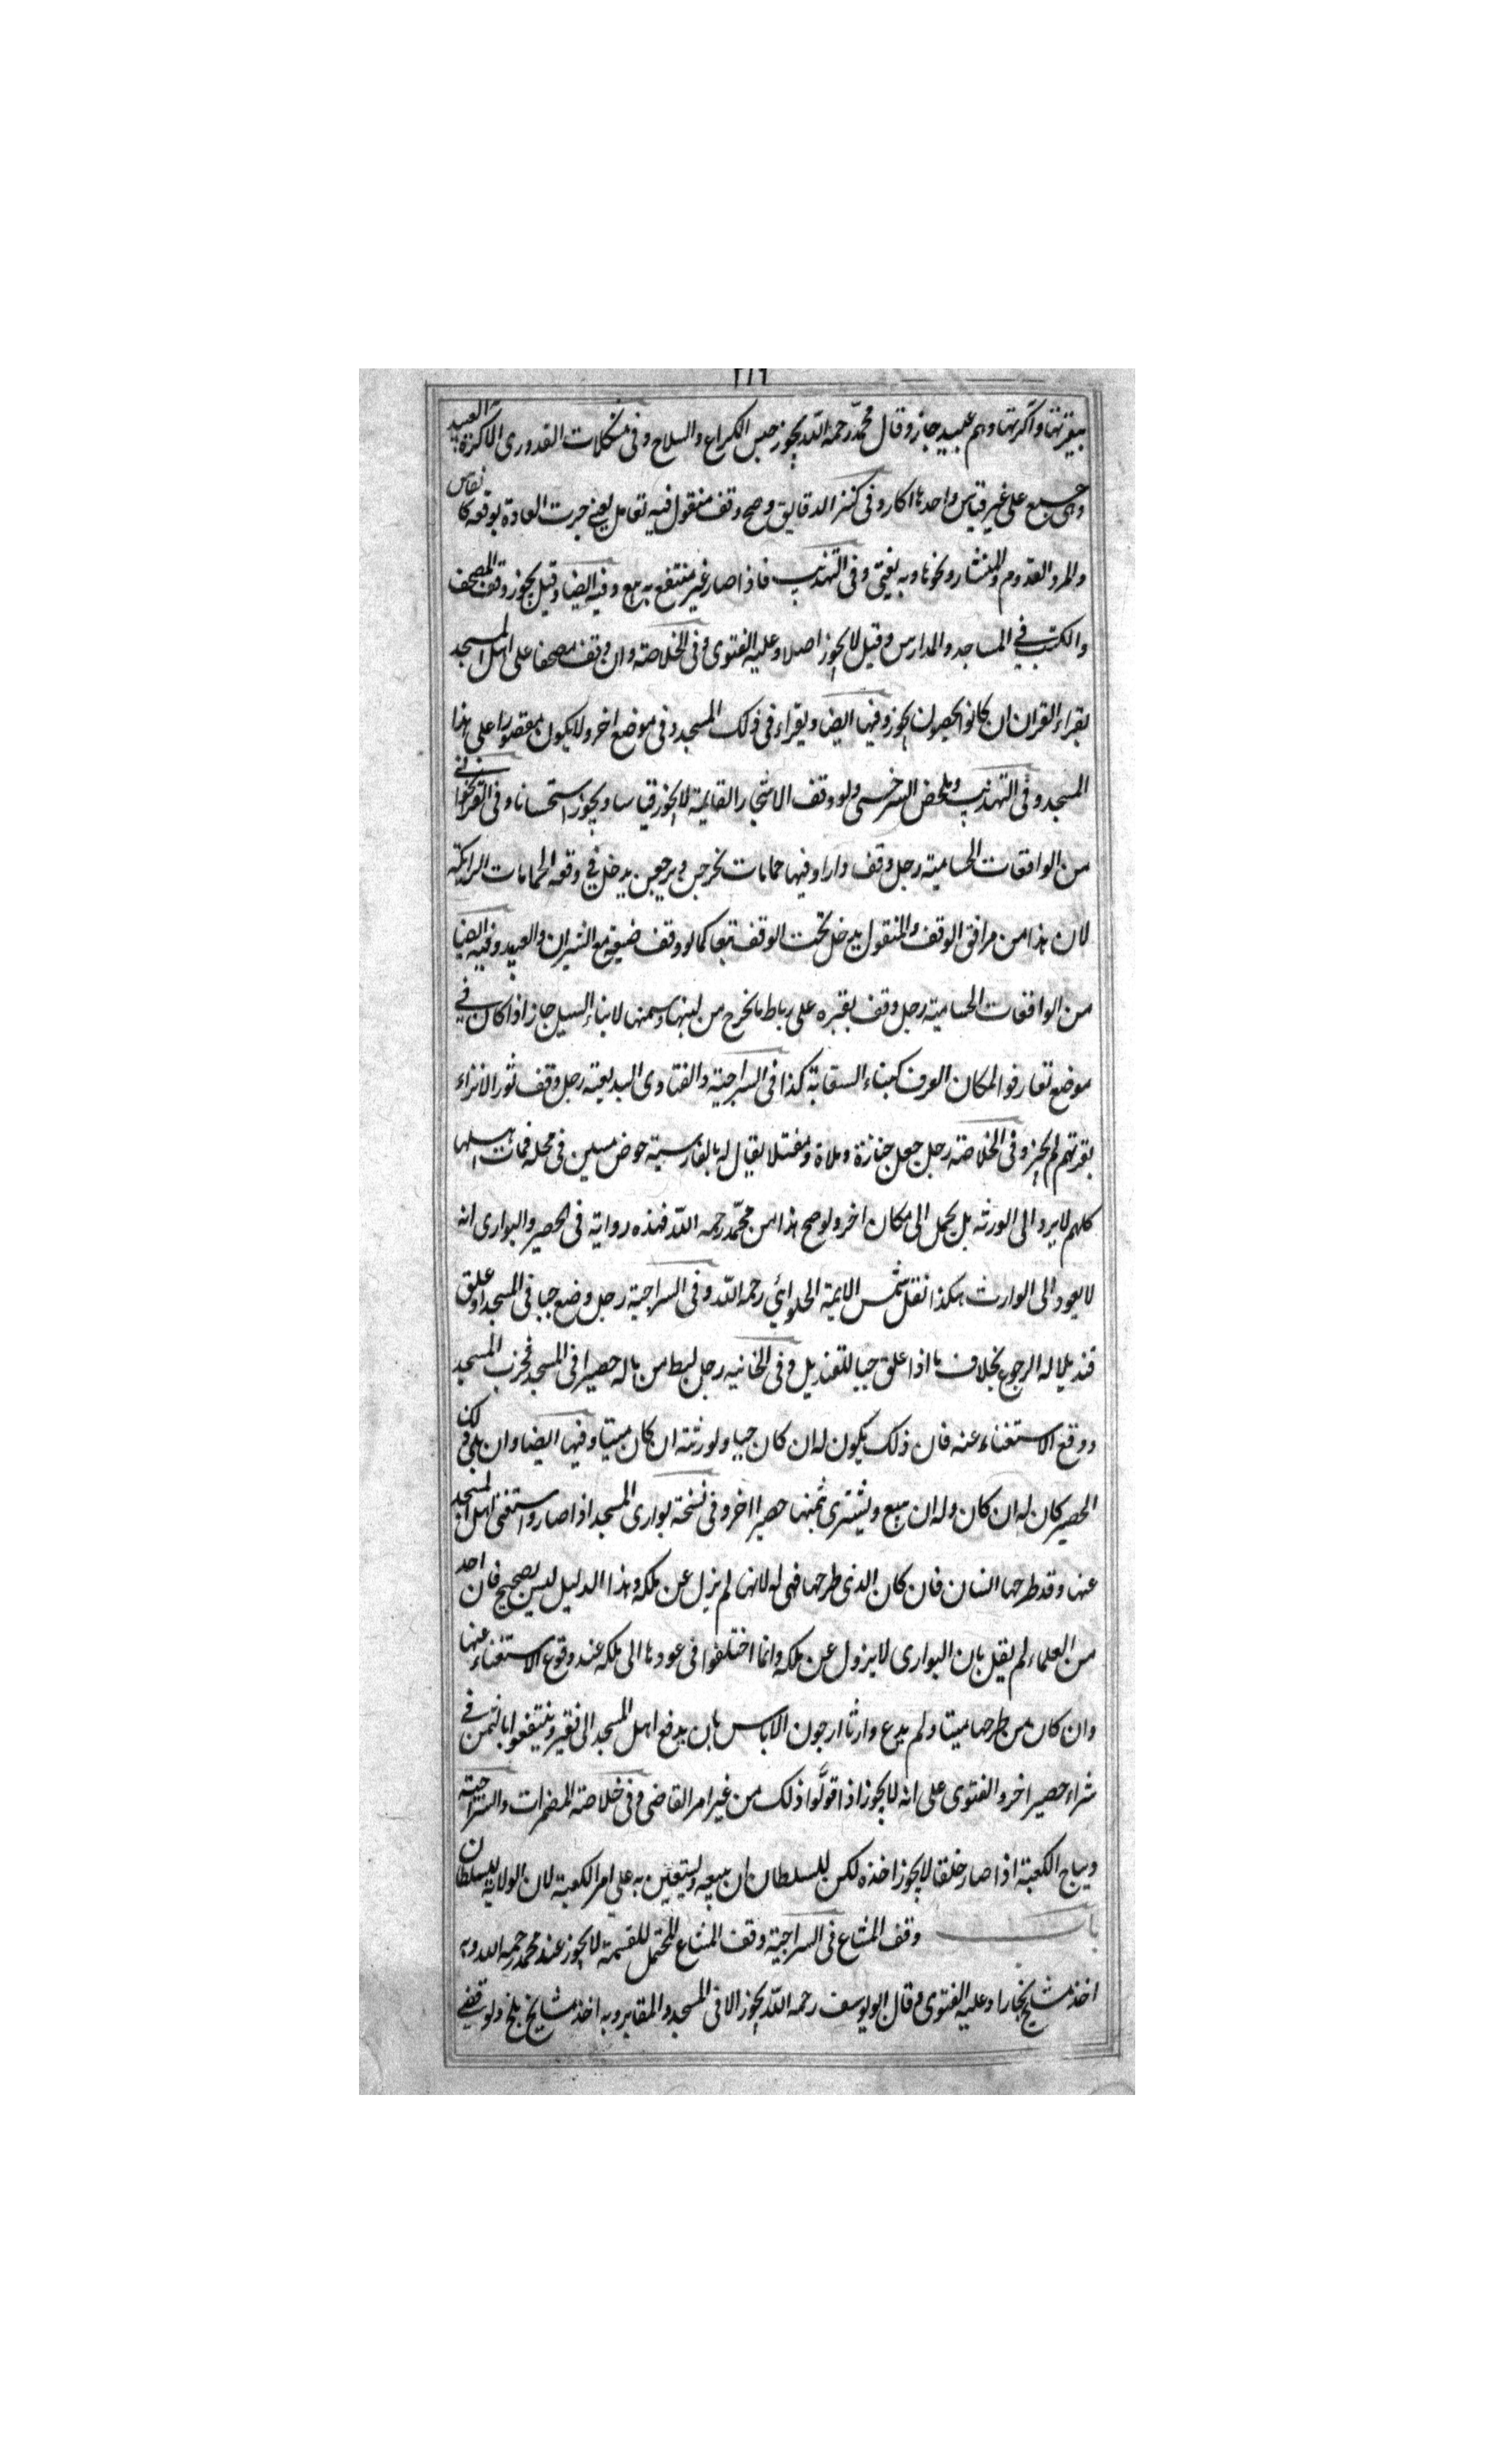 ٢١٩
ببقرتها واكرتها وهم عبيد جاز وقال محمد رحمه الله يجوز حبس الكراع والسلاح وفى مشكلات القدورى الاكرة العبيد
وهى جمع على غير قياس واحدها اكار وفى كنز الدقايق وصح وقف منقول فيه تعامل يعنى جرت العادة بوقفه كا نفاس
والمر والقدوم والمنشار ونحوها وبه يفتى وفى التهذيب فاذا صار غير منتفع به بيع وفيه ايضا وقيل يجوز وقف المصحف
والكتب فى المساجد والمدارس وقيل لا يجوز اصلا وعليه الفتوى وفى الخلاصة وان وقف مصحفا على اهل المسجد
بقراء القران ان كانوا يحصون يجوز وفيها ايضا ويقراء فى ذلك المسجد وفى موضع اخر ولا يكون مقصورا على هذا
المسجد وفى التهذيب وملخص السرخسى ولو وقف الاشجار القايمة لا يجوز قياسا ويجوز استحسانا وفى
من الواقعات الحسامية رجل وقف دارا وفيها حمامات تخرجن ويرجعن يدخل فى وقفه الحمامات
لان هذا من مرافق الوقف والمنقول يدخل تحت الوقف تبعا كما لو وقف ضيعة مع الثيران والعبيد وفيه ايضا
من الواقعات الحسامية رجل وقف بقرة على رباط ما يخرج من لبنها وسمنها لابناء السبيل جاز اذا كان فى
موضع تعارفوا لمكان العرف كبناء السقاية كذا فى السراجية والفتاوى البديعية رجل وقف ثور الانزاء
بقرتهم لم يجز وفى الخلاصة رجل جعل جنازة وملاة ومغتسلا يقال له بالفارسية حوض مسين فى محلة فمات اهلها
كلهم لا يرد الى الورثة بل يحمل الى مكان اخر ولو صح هذا من محمد رحمه الله فهذه رواية فى الحصير والبوارى انه
لا يعود الى الوارث هكذا نقل شمس الايمة الحلوائي رحمه الله وفى السراجية رجل وضع حبا فى المسجد او علق
قنديلا له الرجوع بخلاف ما اذا علق حبا للقنديل وفى الخانيه رجل بسط من ماله حصيرا فى المسجد فخرب المسجد
ووقع الاستغناء عنه فان ذلك يكون له ان كان حيا ولورثته ان كان ميتا وفيها ايضا وان بلى ذلك
الحصير كان له ان كان وله ان يبيع ويشترى بثمنها حصيرا اخر وفى نسخة بوارى المسجد اذا صار واستغنى اهل المسجد
عنها وقد طرحها انسان فان كان الذى طرحها فهى له لانها لم يزل عن ملكه وهذا الدليل ليس بصحيح فان احد
من العلماء لم يقل بان البوارى لا يزول عن ملكه وانما اختلفوا فى عودها الى ملكه عند وقوع الاستغناء عنها
وان كان من طرحها ميتا ولم يدع وارثا ارجو ان لاباس بان يدفع اهل المسجد الى فقير وينتفعوا بالثمن فى
شراء حصير اخر والفتوى على انه لا يجوز اذا تولوا ذلك من غير امر القاضى وفى خلاصة المضمرات والسراجية
ديباج الكعبة اذا صار خلقا لا يجوز اخذه لكن للسلطان ان يبيعه ويستعين به على امر الكعبة لان الولاية للسلطان
باب وقف المشاع فى السراجية وقف المشاع المحتمل للقسمة لا يجوز عند محمد رحمه الله وبه
اخذ مشايخ بخارا وعليه الفتوى وقال ابو يوسف رحمه الله يجوز الا فى المسجد والمقابر وبه اخذ مشايخ بلخ ولو قضى